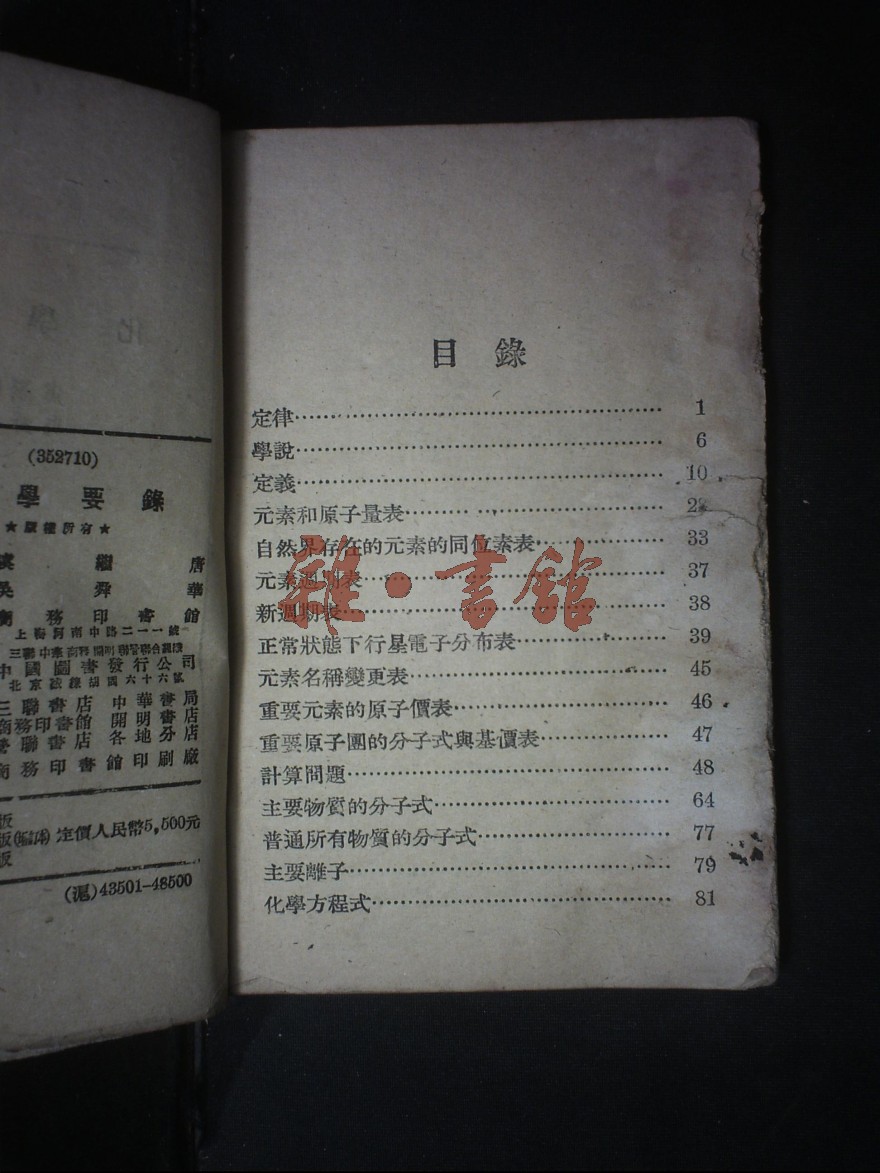 (352710)
學要錄
★版權所有★
繼唐
吳舜華
商務印書館
上海河南中路二一一號
三聯中華商務開明聯營聯合組織
中國圖書發行公司
北京絨線胡同六十六號
三聯書店 中華書局
商務印書館 開明書店
聯營書店 各地分店
商務印書館印刷廠
版
版 定價人民幣5,500元
版
(滬)43501-48500
目錄
定律 1
學說 6
定義 10
元素和原子量表
自然界存在的元素的同位素表 33
元素週期表 37
新週期表 38
正常狀態下行星電子分布表 39
元素名稱變更表 45
重要元素的原子價表 46
重要原子團的分子式與基價表 47
計算問題 48
主要物質的分子式 64
普通所有物質的分子式 77
主要離子 79
化學方程式 81
雜·書館